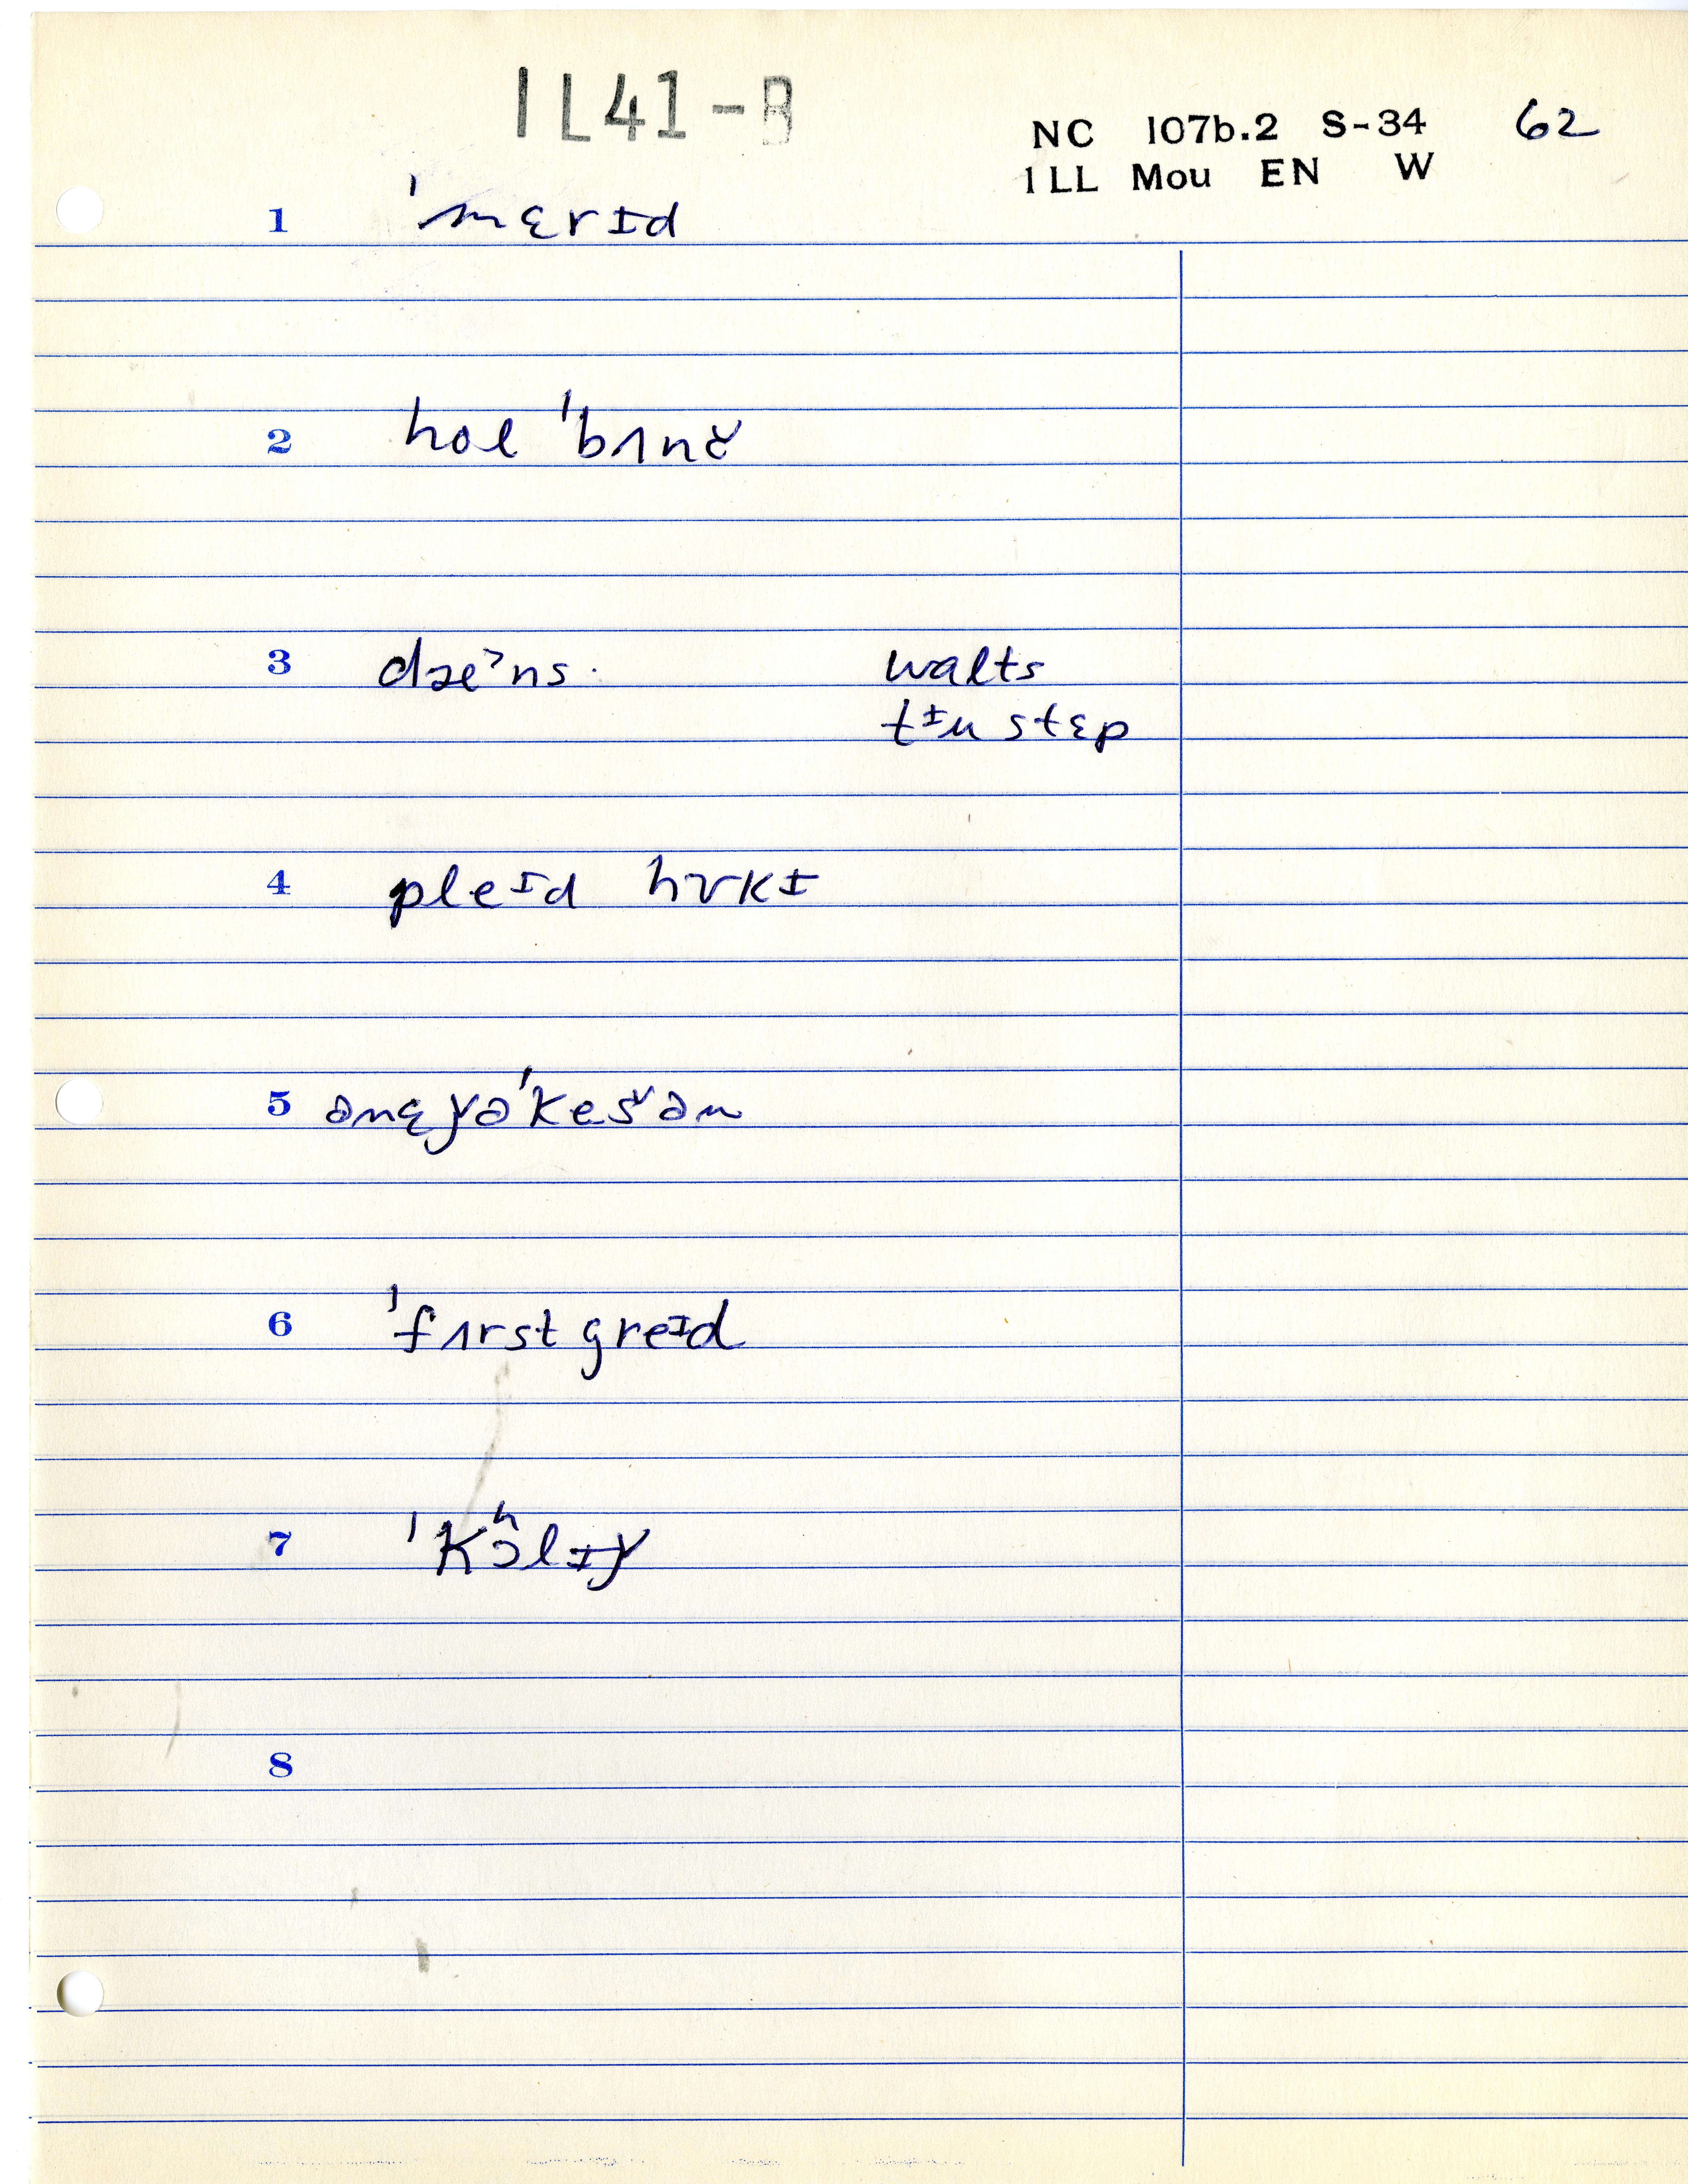 IL41-B
NC 107b.2 S-34 62
ILL Mou EN W
1 ˈmɛrɪd
2 hol ˈbʌnɚ
3 dæ˃ns. walts
tɪu stɛp
4 pleɪd hʊkɪ
5 ənɛɣəˈkešən
6 ˈfʌrst greɪd
7 ˈkʰɔlɪɣ
8